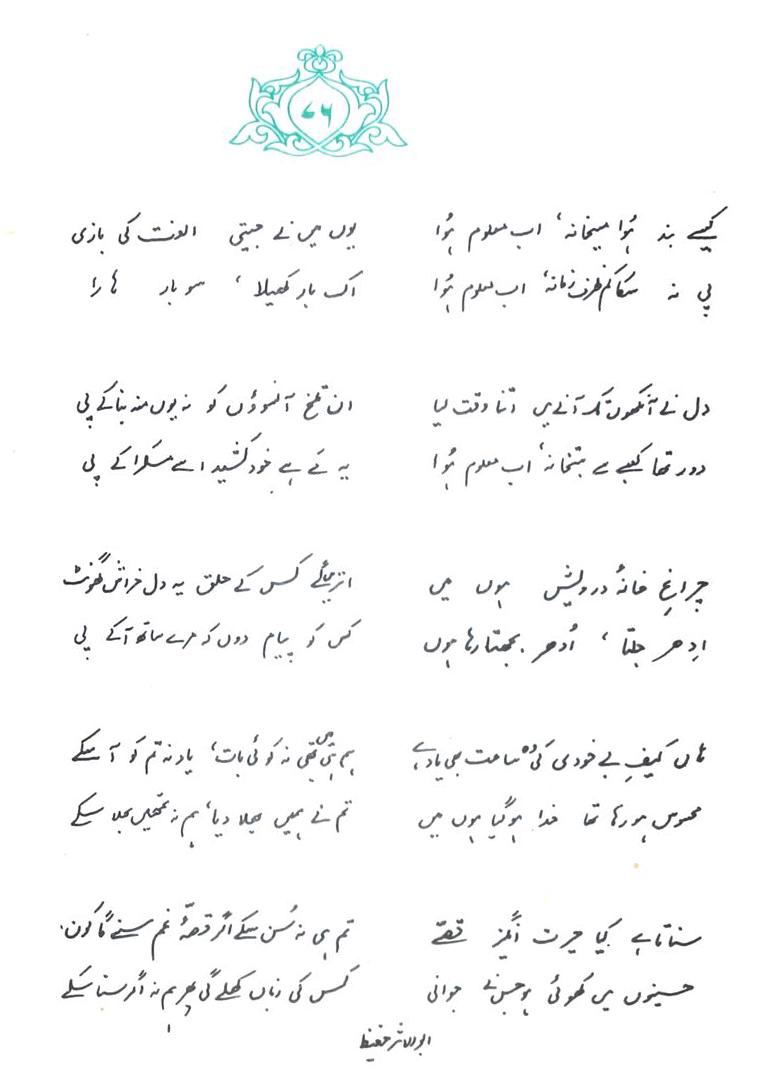 کیسے بند ہُوا میخانہ، اب معلوم ہُوا
پی نہ سکا کم ظرف زمانہ، اب معلوم ہُوا
یوں میں نے جیتی الفت کی بازی
اک بار کھیلا، سو بار ہارا
دل نے آنکھوں تک آنے میں اتنا وقت لیا
دور تھا کعبے سے بتخانہ، اب معلوم ہُوا
ان تلخ آنسوؤں کو نہ یوں منہ بنا کے پی
یہ مے ہے خود کشید اسے مسکرا کے پی
چراغِ خانۂ درویش ہوں میں
اِدھر جلتا، اُدھر بجھتا رہا ہوں
اتریں گے کس کے حلق یہ دل خراش گھونٹ
کس کو پیام دوں کہ مرے ساتھ آ کے پی
ہاں کیفِ بے خودی کی وہ ساعت بھی یاد ہے
محسوس ہو رہا تھا خدا ہو گیا ہوں میں
ہم ہی میں تھی نہ کوئی بات، یاد نہ تم کو آ سکے
تم نے ہمیں بھلا دیا، ہم نہ تمھیں بھلا سکے
سناتا ہے کیا حیرت انگیز قصّے
حسینوں میں کھوئی ہو جس نے جوانی
تم ہی نہ سُن سکے اگر قصّۂ غم سنے گا کون
کس کی زباں کھلے گی پھر ہم نہ اگر سنا سکے
ابوالاثر حفیظ